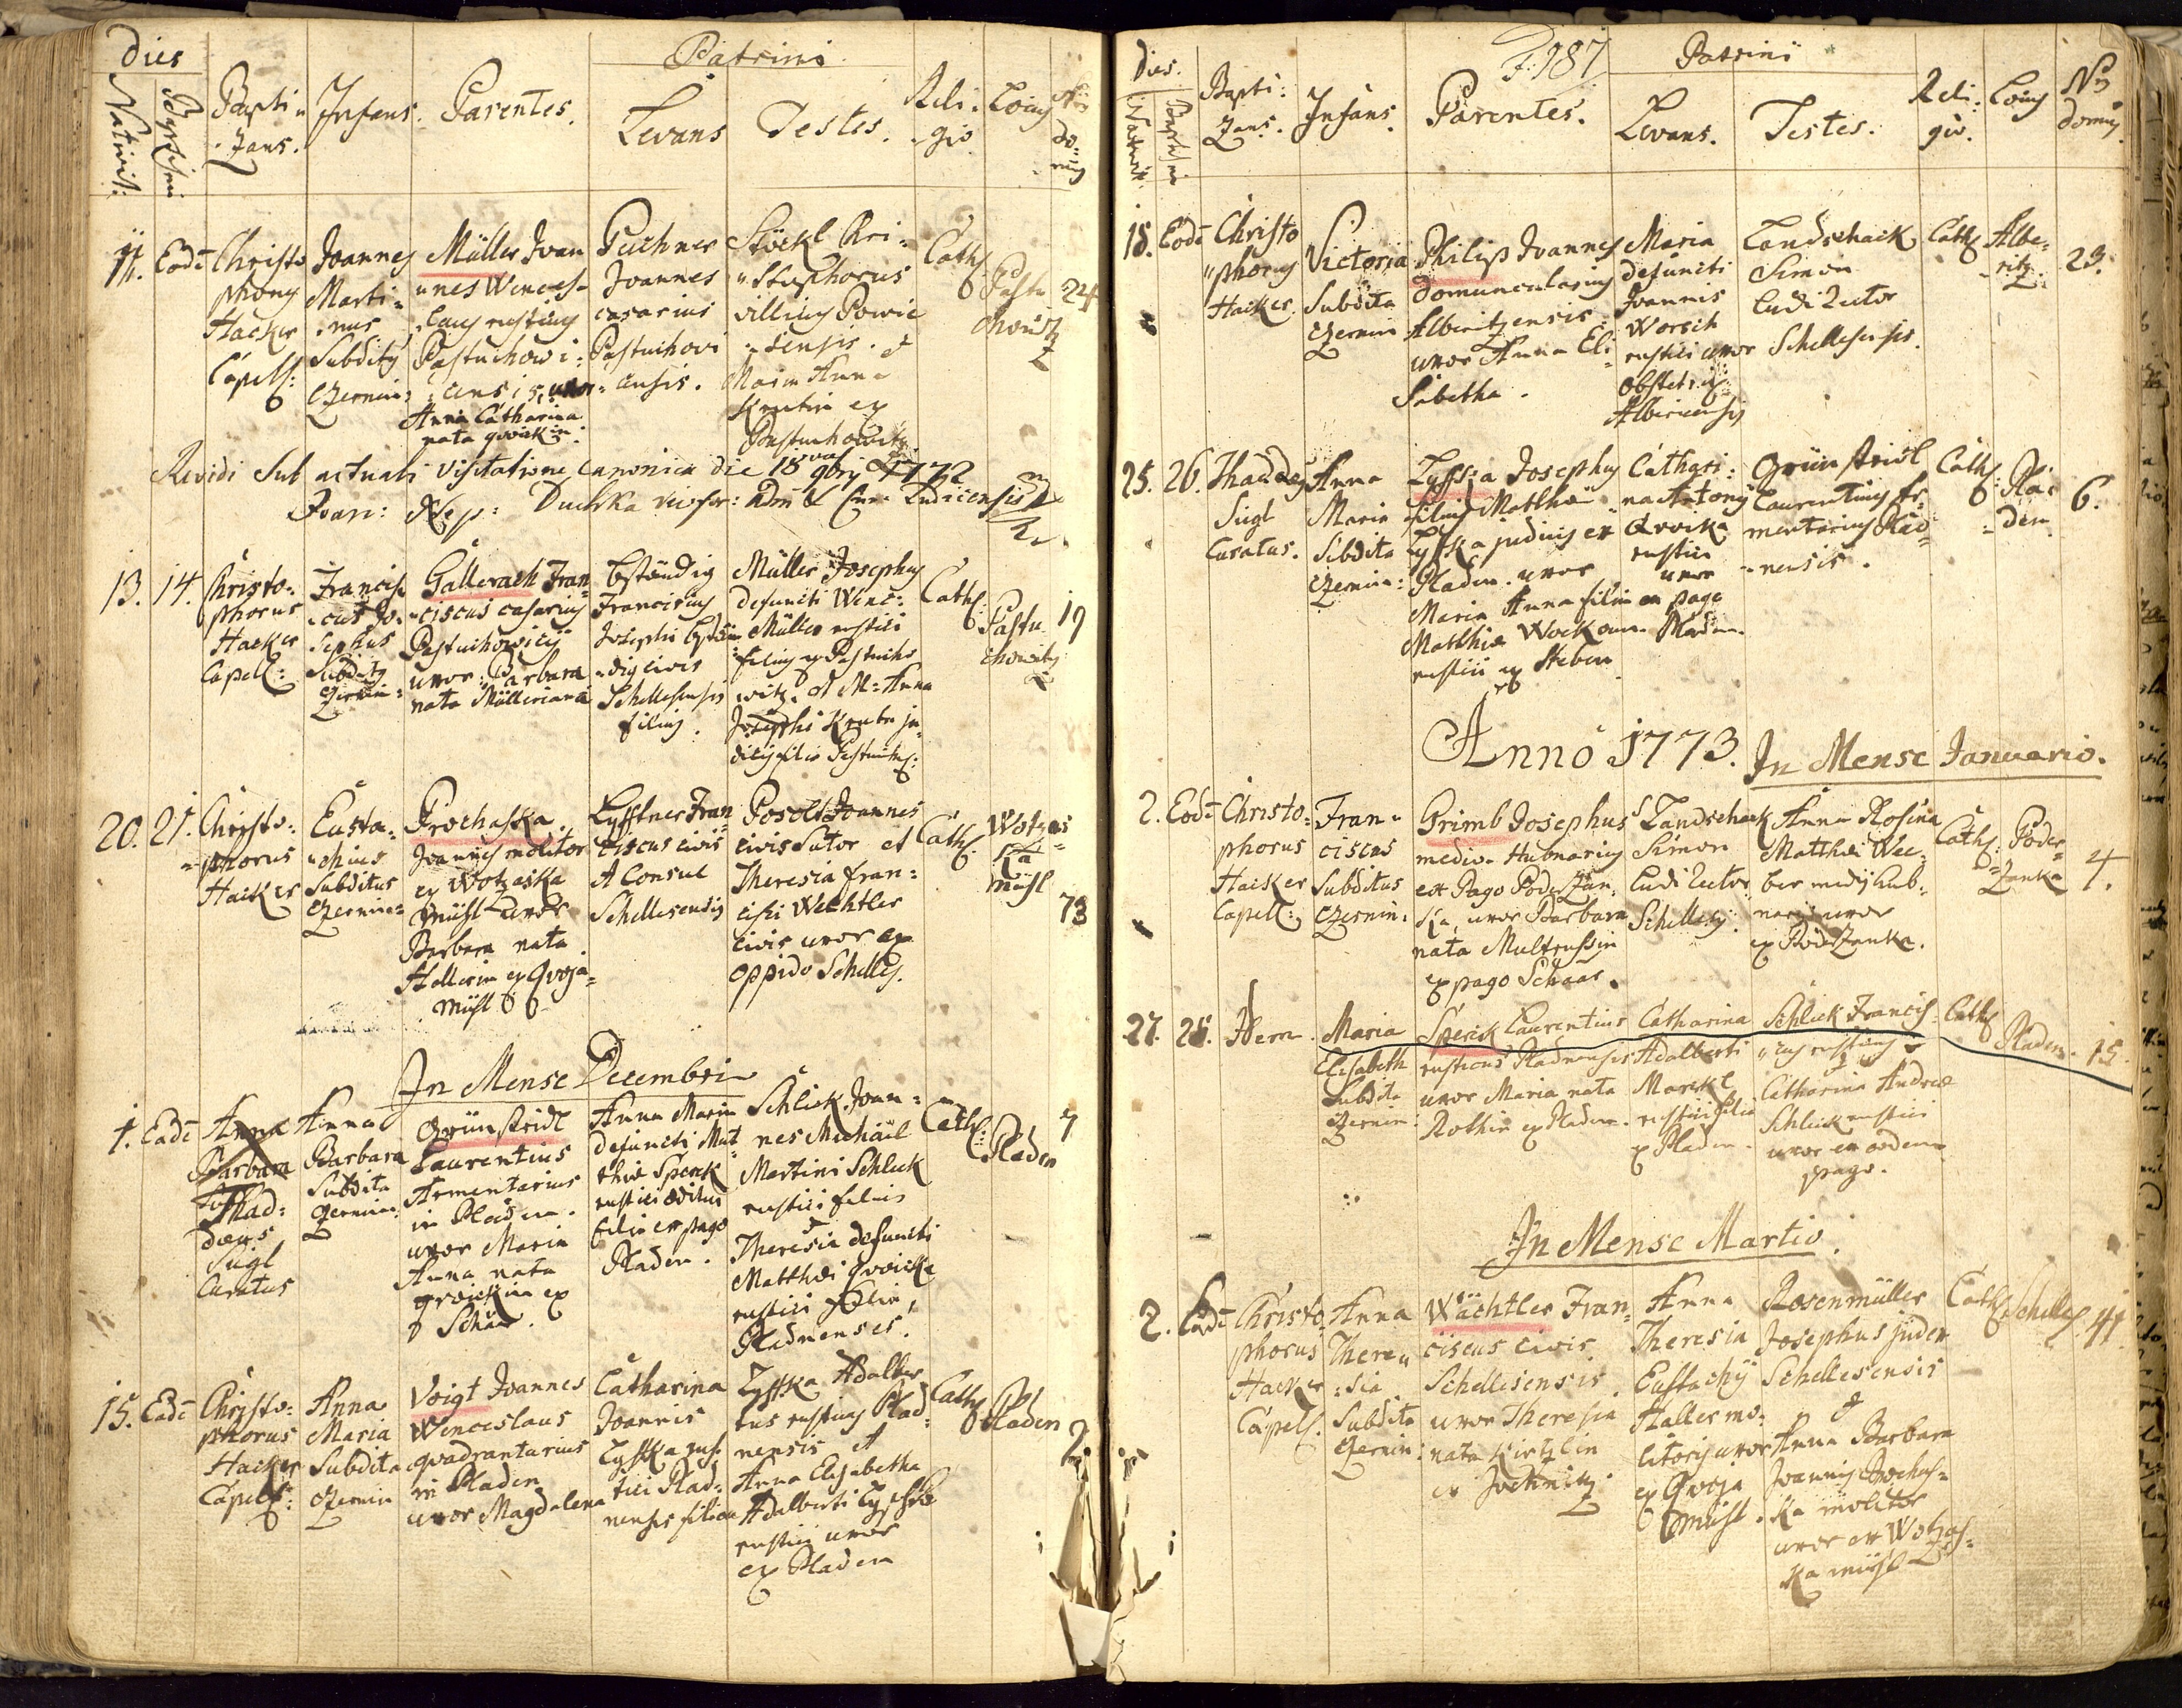 dies
Patrini
Nativit:
Baptismi
Bapti-
zans.
Infans.
Parentes.
Levans
Testes.
Reli-
gio
Locus
Nrus
do-
mus
11.
Eode
Christo
phorus
Hacker
Capell:
Joannes
Marti-
nus
Subditus
Czernin:
Müller Joan
nes Wences-
laus rusticus
Pastuchowi-
censis, uxor
Anna Catharina
nata qwoickin.
Puchner
Joannes
casarius
Pastuchovi
censis.
Stöckl Chri-
stophorus
villicus Powic
censis. et
Maria Anna
Krutin ex
Pastuchowitz
Cath:
Pastu
chowitz
24
Revidi Sub actuali Visitatione canonica die 18va 9bris 1772
Joan: Nep: Duchka
13.
14.
Christo-
phorus
Hacker
Capell:
Francis
cus Jo-
sephus
Subditus
Czernin:
Gallerach Fran
ciscus casarius
Pastuchowicij
uxor: Barbara
nata Mülleriana
bständig
Franciscus
Josephi bstän
dig civis
Schellesensis
filius.
Müller Josephus
defuncti Wenc:
Müller rustici
filius ex Pastucho
witz. et M: Anna
Josephi Kruta ju-
dicis filia Pastuchs:
Cath:
Pastu
chowitz
19
20.
21.
Christo-
phorus
Hacker
Eusta-
chius
Subditus
Czernin-
Prochaska
Joannes molitor
ex Wotzaska
mühl uxor
Barbara nata
Hallerin ex Qvoja-
mühl
Lyfftner Fran
ciscus civis
et Consul
Schellesensis
Posolt Joannes
civis Sutor et
Theresia Fran-
cisci Wechtler
civis uxor ex
oppido Schelles.
Cath:
Wotzas
ka
mühl
73
In Mense Decembri
1.
Eode
Anna
Barbara
Thad-
daeus
Sügl
Curatus
Anna
Barbara
Subdita
Czernin:
Grünstridl
Laurentius
Armentarius
in Pladen.
uxor Maria
Anna nata
qwoickin ex
Schaar.
Anna Maria
defuncti Mat
thiae Sperck
rustici
filia ex pago
Pladen.
Schlick Joan-
nes Michäel
Martini Schlick
rustici filius
et
Theresia defuncti
Matthaei Qwoicka
rustici filia,
Pladnenses.
Cath:
Pladen
7
15.
Eode
Christo-
phorus
Hacker
Capell:
Anna
Maria
Subdita
Czernin
Voigt Joannes
Wenceslaus
qvadrantarius
in Pladen
uxor Magdalena
Catharina
Joannis
Lyffka rus-
tici Plad-
nensis filia
Lyffka Adalber
tus rusticus Plad-
nensis et
Anna Elisabetha
Adalberti Lyffka
rustici uxor
ex Pladen
Cath:
Pladen
2
F: 187
Dies.
Nativit.
Baptismi
Bapti:
Zans.
Infans.
Parentes.
Patrini
Levans.
Testes.
Reli:
gio.
Locus
Nrs
domus.
18.
Eode
Christo
phorus
Hacker
Victoria
Subdita
Czernin
Philip Joannes
Domuncularius
Alberitzensis
uxor Anna Eli-
sabetha.
Maria
defuncti
Joannis
Worsch
rustici uxor
obstetrix
Albericensis
Landschack
Simon
Ludi Rector
Schellesensis.
Cath:
Albe-
ritz.
23.
25.
26.
Thaddaeus
Sügl
Curatus.
Anna
Maria
Subdita
Czernin:
Lyffka Josephus
filius Matthaei
Lyffka judicis ex
Pladen. uxor
Maria Anna filia
Matthiae Wock
rustici ex Steben
Cathari-
na Antony
Qvocka
rustici
uxor
ex pago
Pladen
Grünstridl
Laurentius Ar-
mentarius Plad-
nensis.
Cath:
Pla-
den
6.
Anno 1773. In Mense Januario.
2.
Eode
Christo-
phorus
Hacker
Capell:
Fran-
ciscus
Subditus
Czernin:
Grimb Josephus
medio-Hubnarius
ex Pago Poderzan-
ka, uxor Barbara
nata Multrussin
ex pago Schaar.
Landschack
Simon
Ludi Rector
Schelles:
Anna Rosina
Matthaei We-
ber medij hub-
narij uxor
ex Poderzanka.
Cath:
Poder-
zanka
4.
27.
28.
Idem.
Maria
Elisabeth
Subdita
Czernin:
Sperck Laurentius
rusticus Pladnensis
uxor Maria nata
Rothin ex Pladen.
Catharina
Adalberti
Marckl
rustici filia
ex Pladen.
Schlick Francis-
cus rusticus et
Catharina Andreae
Schlick rustici
uxor ex eodem
pago.
Cath:
Pladen.
15.
In Mense Martio.
2.
Eode
Christo-
phorus
Hacker
Capell.
Anna
There-
sia
Subdita
Czernin:
Wächtler Fran-
ciscus civis
Schellesensis
uxor Theresia
nata Kirtzlin
ex Jechnitz
Anna
Theresia
Eustachij
Haller mo-
litoris uxor
ex Qvoja
mühl.
Rosenmüller
Josephus judex
Schellesensis
et
Anna Barbara
Joannis Prochas-
ka molitor
uxor ex Wotzas-
ka mühl
Cath:
Schelles.
41.